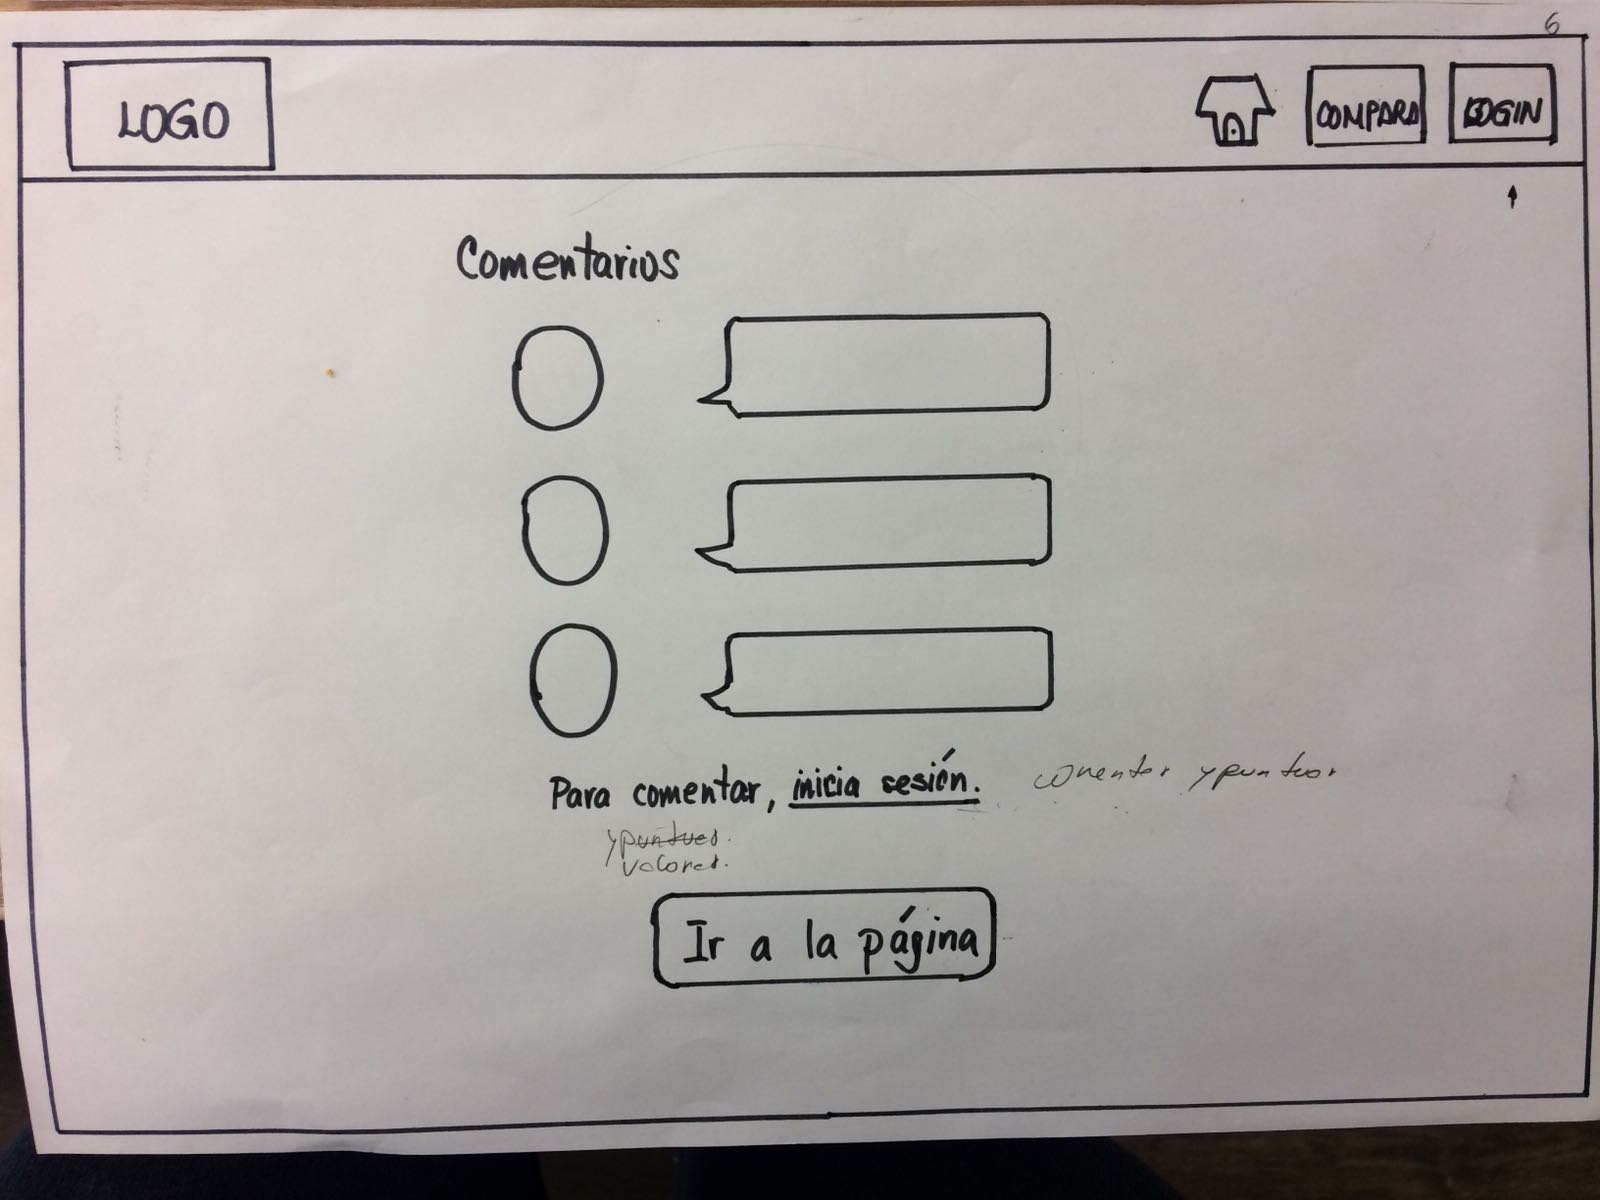 6
LOGO
COMPARA
LOGIN
Comentarios
Para comentar, inicia sesión.
comentar y puntuar
y puntues.
valores.
Ir a la página